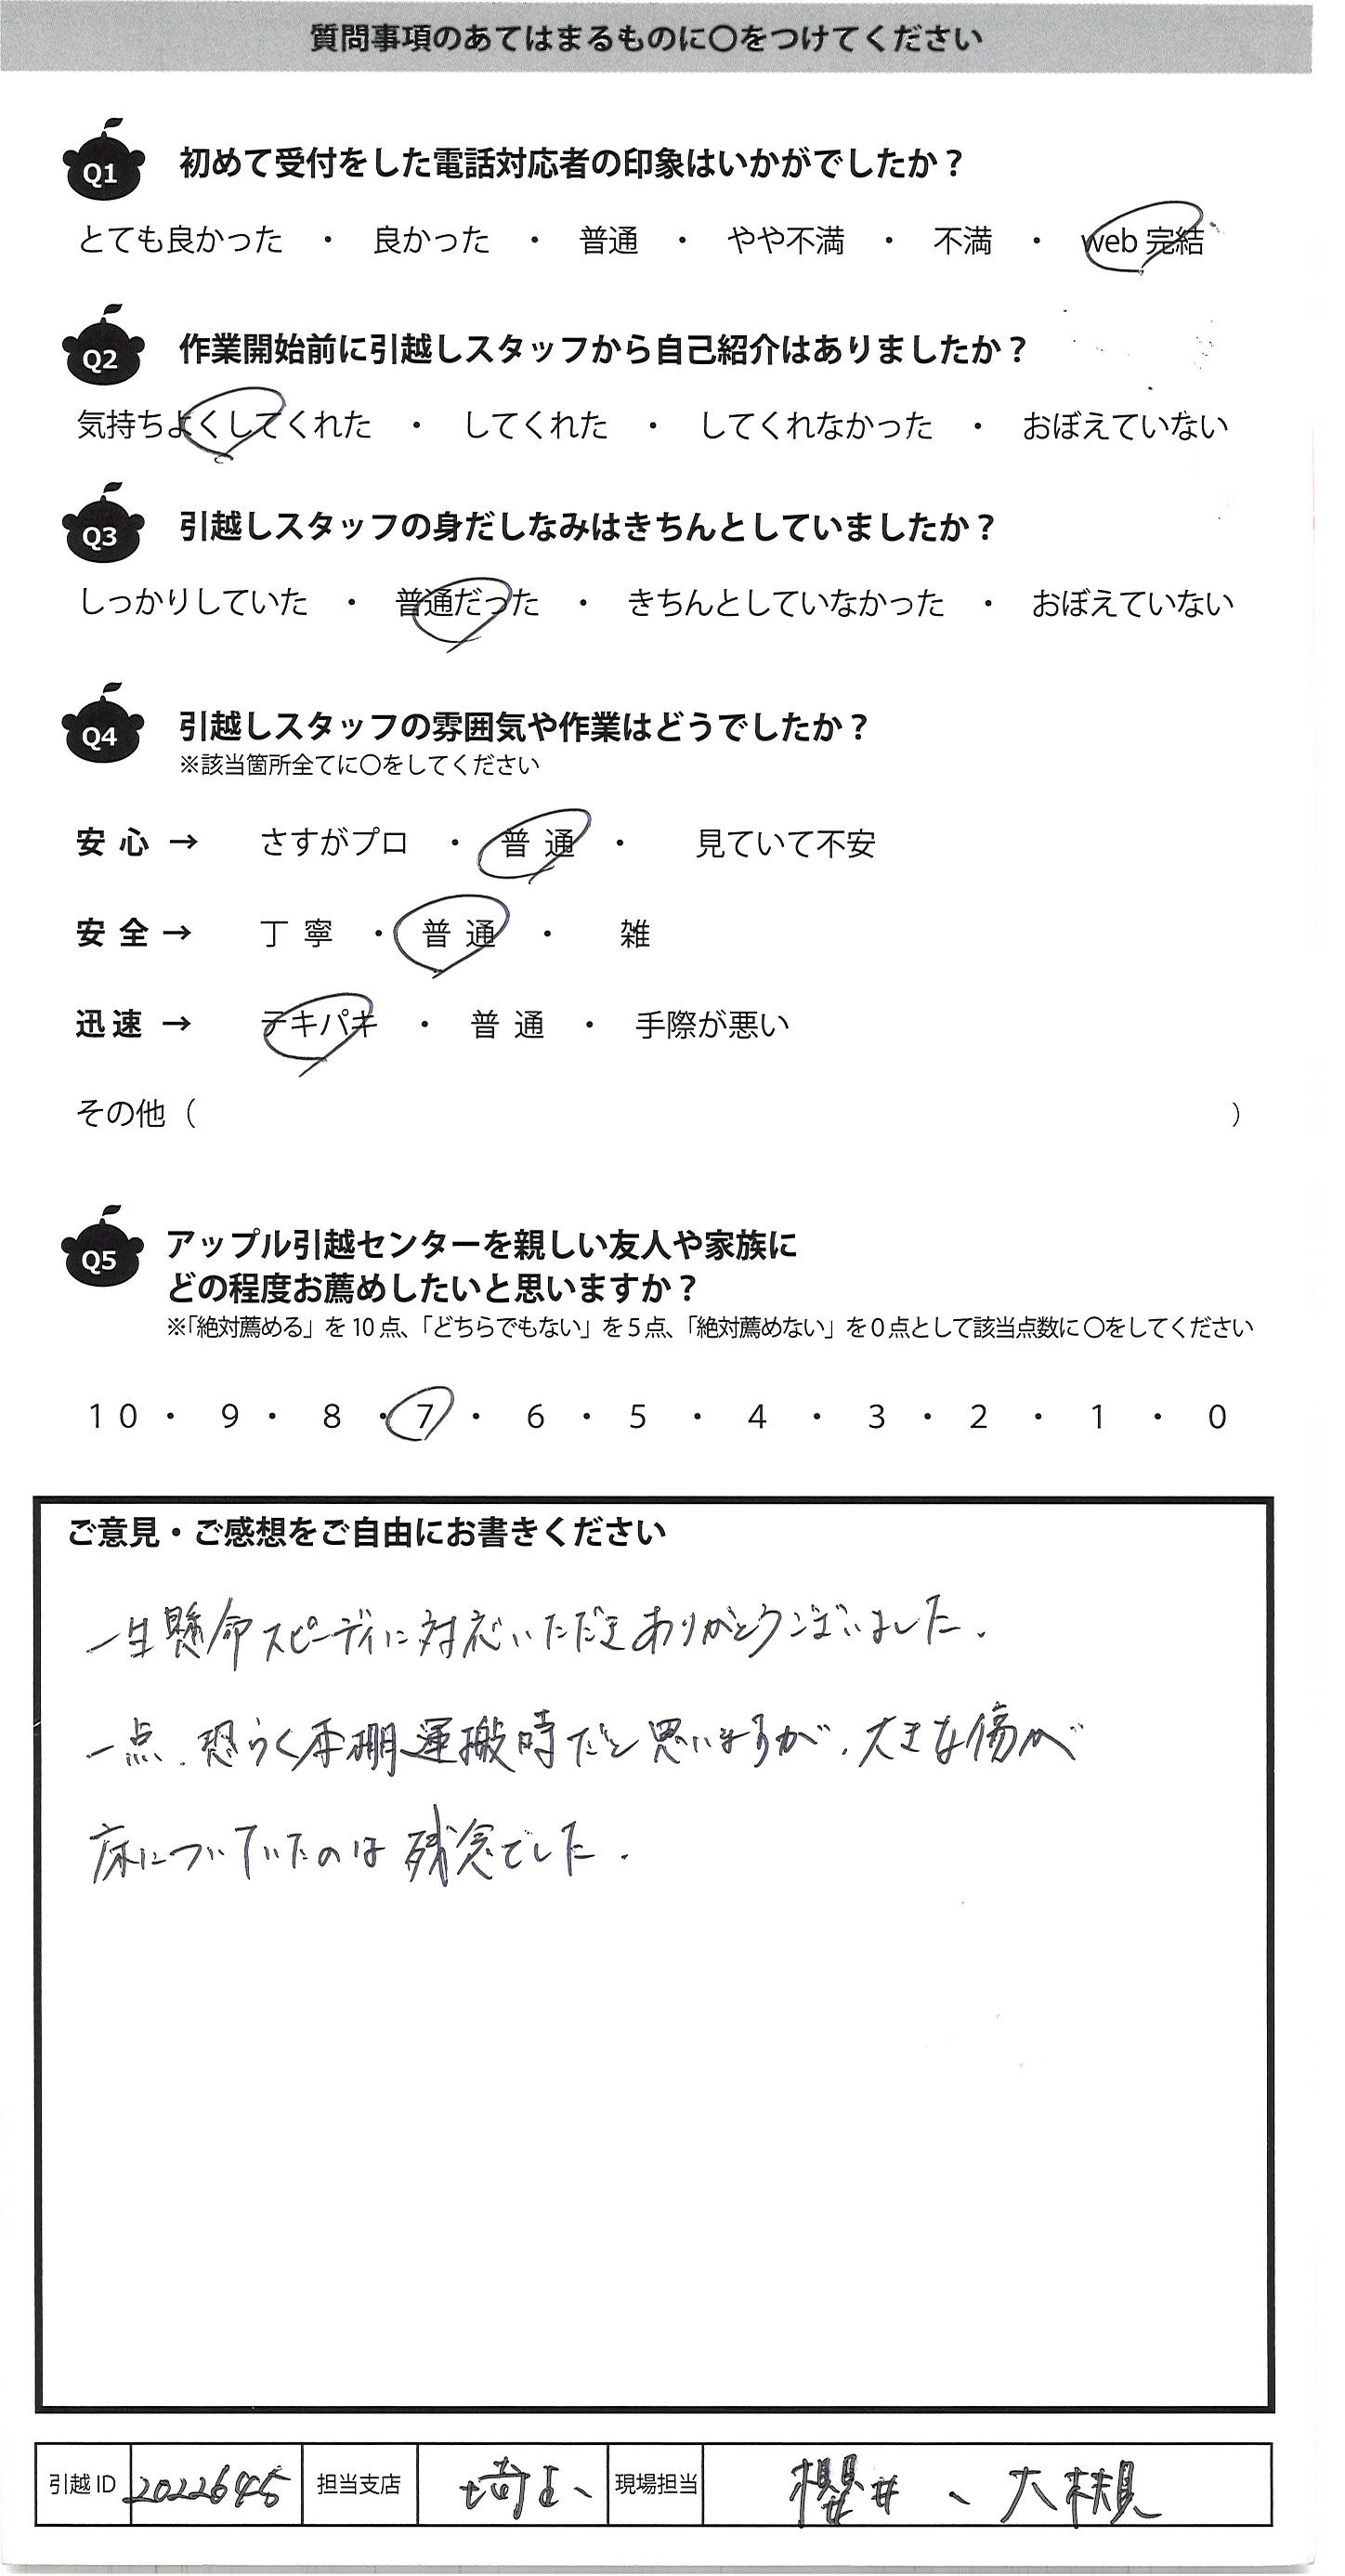 質問事項のあてはまるものに〇をつけてください
Q1 初めて受付をした電話対応者の印象はいかがでしたか？
とても良かった ・ 良かった ・ 普通 ・ やや不満 ・ 不満 ・ web 完結
Q2 作業開始前に引越しスタッフから自己紹介はありましたか？
気持ちよくしてくれた ・ してくれた ・ してくれなかった ・ おぼえていない
Q3 引越しスタッフの身だしなみはきちんとしていましたか？
しっかりしていた ・ 普通だった ・ きちんとしていなかった ・ おぼえていない
Q4 引越しスタッフの雰囲気や作業はどうでしたか？
※該当箇所全てに〇をしてください
安心 → さすがプロ ・ 普通 ・ 見ていて不安
安全 → 丁寧 ・ 普通 ・ 雑
迅速 → テキパキ ・ 普通 ・ 手際が悪い
その他（ ）
Q5 アップル引越センターを親しい友人や家族に
どの程度お薦めしたいと思いますか？
※「絶対薦める」を 10 点、「どちらでもない」を 5 点、「絶対薦めない」を 0 点として該当点数に 〇をしてください
10 ・ 9 ・ 8 ・ 7 ・ 6 ・ 5 ・ 4 ・ 3 ・ 2 ・ 1 ・ 0
ご意見・ご感想をご自由にお書きください
一生懸命スピーディに対応いただきありがとうございました。
一点、恐らく本棚運搬時だと思いますが、大きな傷が
床についていたのは残念でした。
引越 ID 2022645 担当支店 埼玉 現場担当 櫻井、大槻